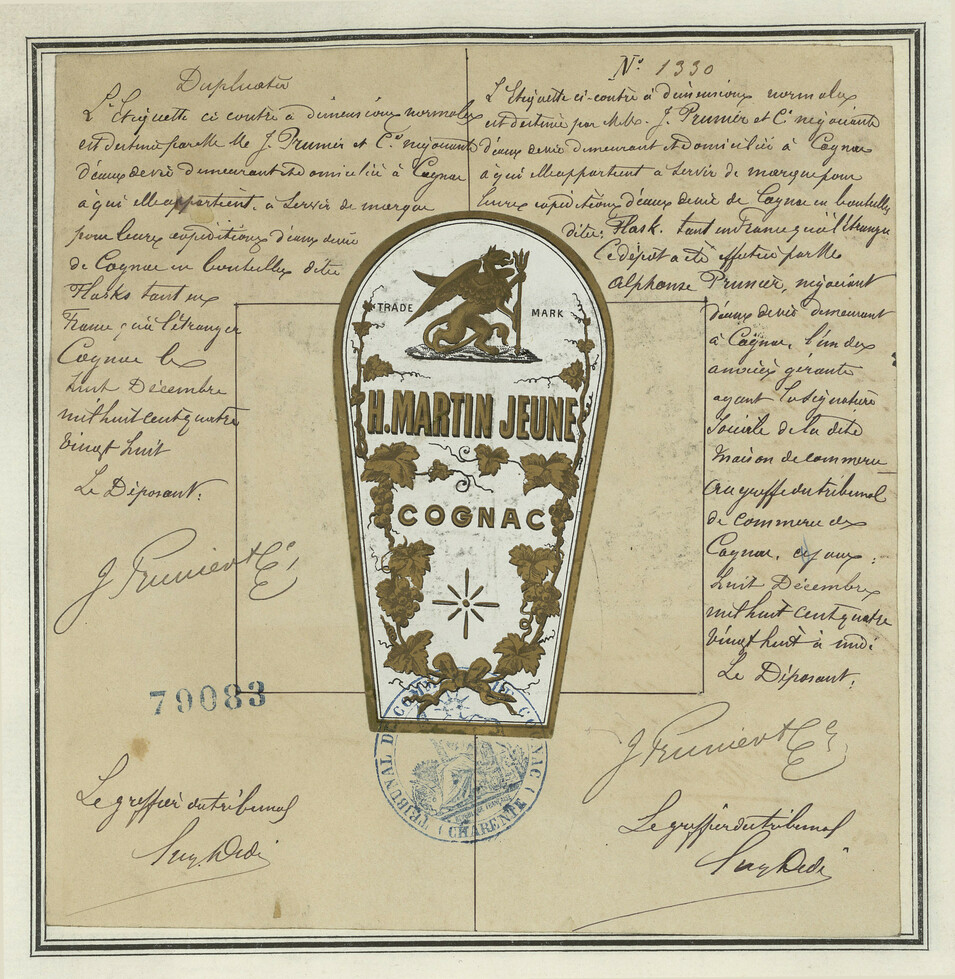 Duplicata
L'Etiquette ci contre à dimensions normales
est destinée par MM. J. Prunier et Cie négociants
d'eaux de vie demeurant et domiciliés à Cognac
à qui elle appartient, à servir de marque
pour leurs expéditions d'eaux de vie
de Cognac en bouteilles dites
Flasks tant en
France qu'à l'étranger
Cognac le
huit Décembre
mil huit cent quatre
vingt huit
Le Déposant:
J Prunier & Cie
79083
Le greffier du tribunal
No 1330
L'Etiquette ci-contre à dimensions normales
est destinée par MM. J. Prunier et Cie négociants
d'eaux de vie demeurant et domiciliés à Cognac
à qui elle appartient à servir de marque pour
leurs expéditions d'eaux de vie de Cognac en bouteilles
dites: Flask. tant en France qu'à l'étranger
Ce dépôt a été effectué par Mr
Alphonse Prunier, négociant
d'eaux de vie demeurant
à Cognac, l'un des
associés gérants
ayant la signature
sociale de la dite
maison de commerce
au greffe du tribunal
de commerce de
Cognac, ce jour:
huit Décembre
mil huit cent quatre
vingt huit à midi
Le Déposant:
J Prunier & Cie
Le greffier du tribunal
TRADE MARK
H. MARTIN JEUNE
COGNAC
TRIBUNAL DE COMMERCE DE COGNAC
(CHARENTE)